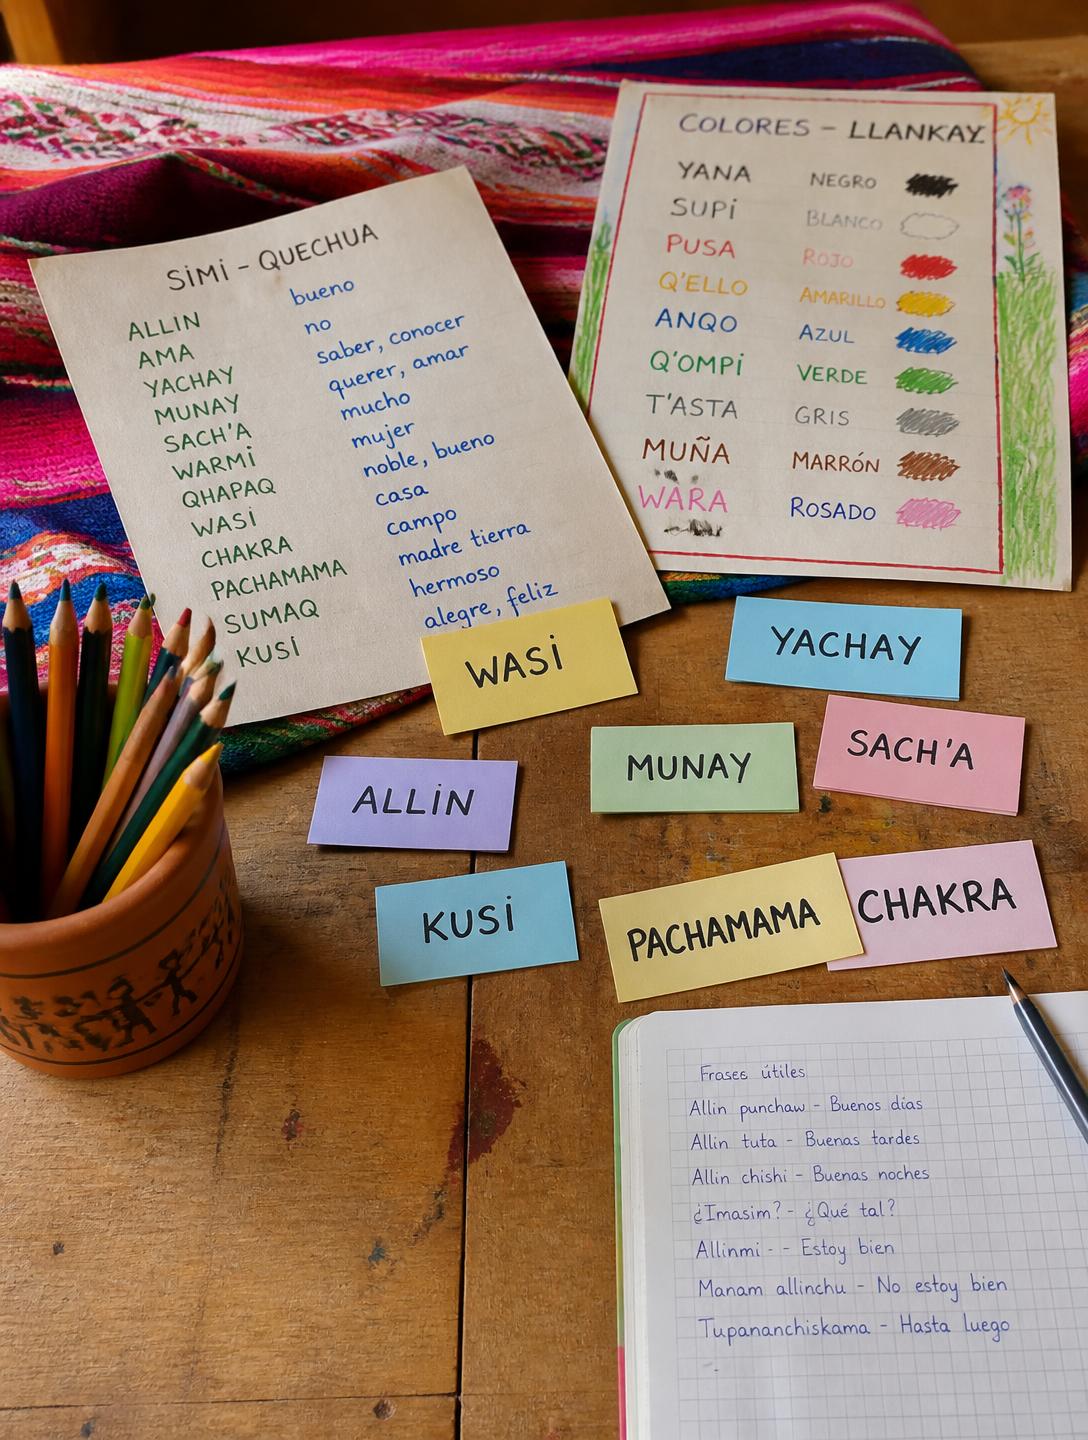 SIMI - QUECHUA
ALLIN bueno
AMA no
YACHAY saber, conocer
MUNAY querer, amar
SACH'A mucho
WARMI mujer
QHAPAQ noble, bueno
WASI casa
CHAKRA campo
PACHAMAMA madre tierra
SUMAQ hermoso
KUSI alegre, feliz
COLORES - LLANKAY
YANA NEGRO
SUPI BLANCO
PUSA ROJO
Q'ELLO AMARILLO
ANQO AZUL
Q'OMPI VERDE
T'ASTA GRIS
MUÑA MARRÓN
WARA ROSADO
WASI
YACHAY
ALLIN
MUNAY
SACH'A
KUSI
PACHAMAMA
CHAKRA
Frases útiles
Allin punchaw - Buenos días
Allin tuta - Buenas tardes
Allin chishi - Buenas noches
¿Imasim? - ¿Qué tal?
Allinmi - - Estoy bien
Manam allinchu - No estoy bien
Tupananchiskama - Hasta luego